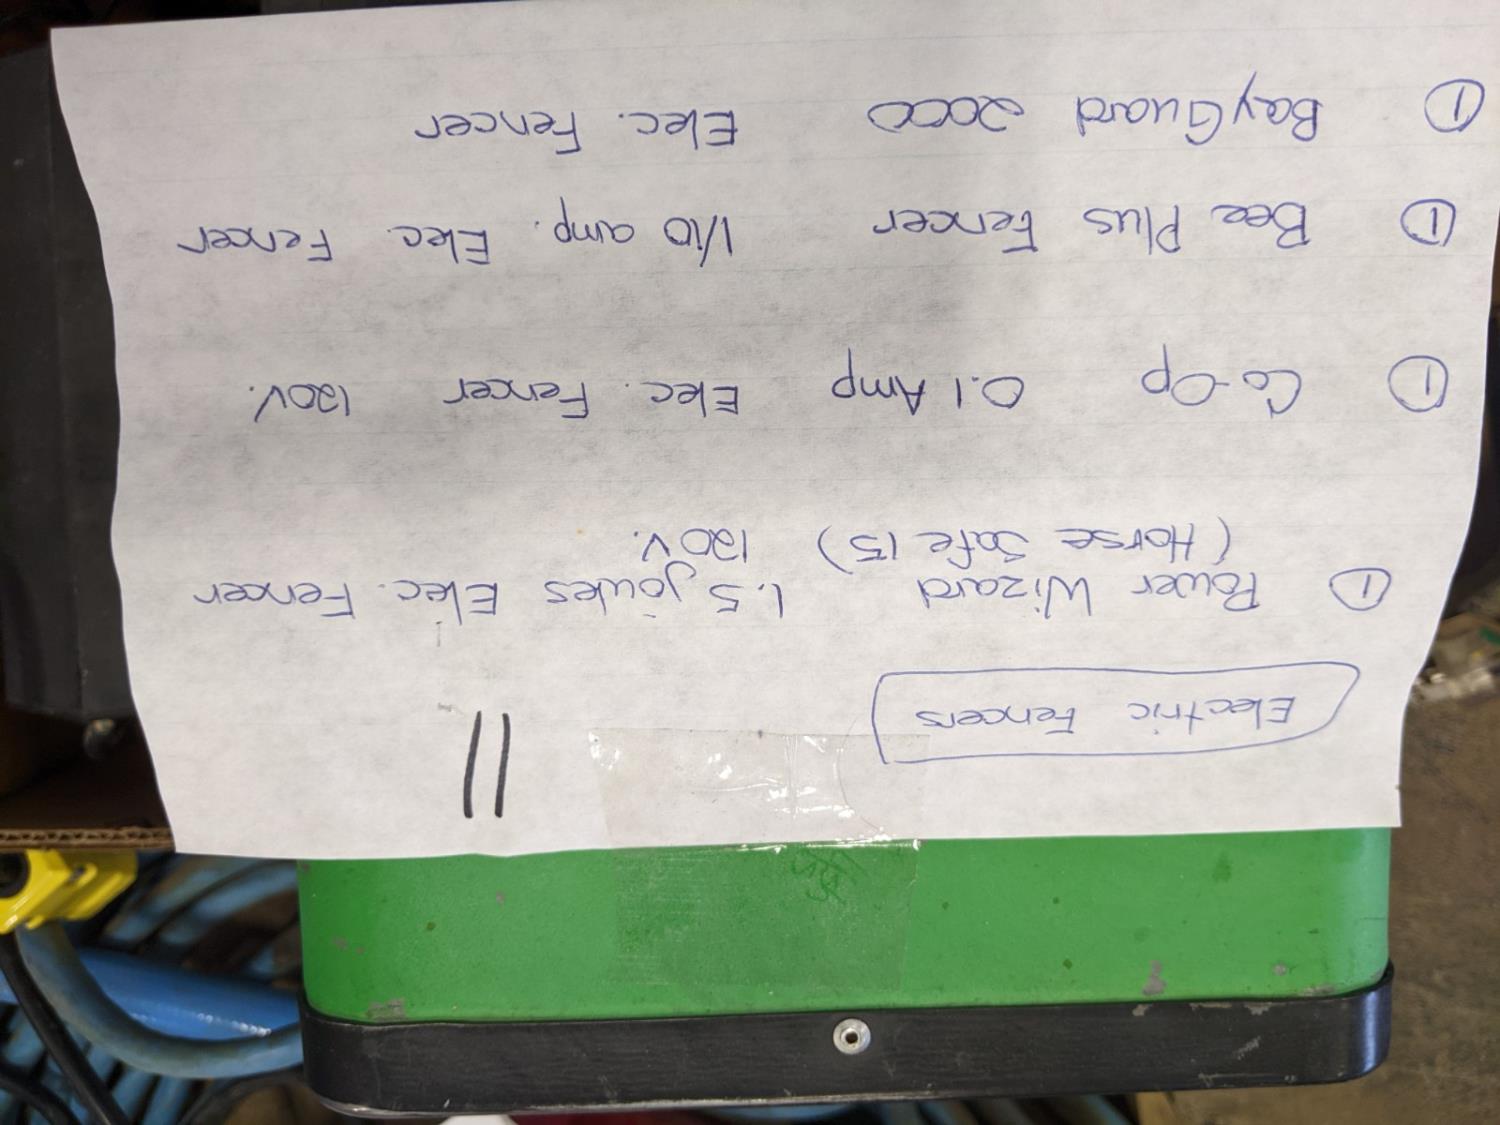 11
Electric Fencers
① Power Wizard 1.5 joules Elec. Fencer
(Horse Safe 15) 120V.
① Co-Op 0.1 Amp Elec. Fencer 120V.
① Bee Plus Fencer 1/10 amp. Elec. Fencer
① BayGuard 2000 Elec. Fencer